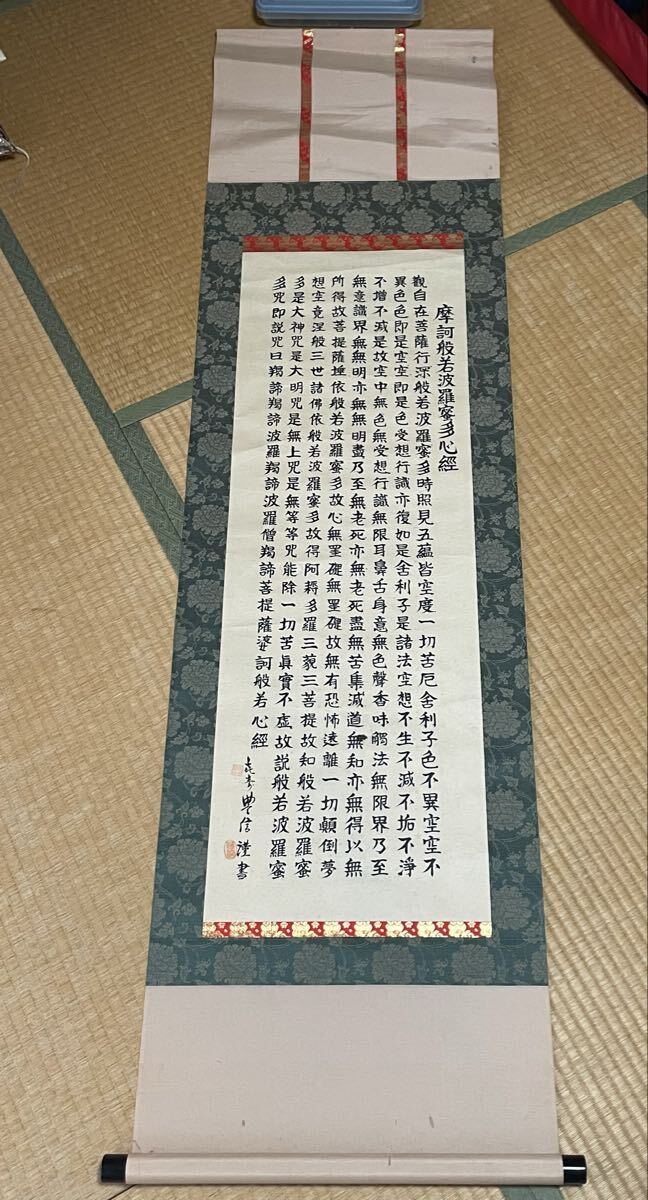 摩訶般若波羅蜜多心經
觀自在菩薩行深般若波羅蜜多時照見五蘊皆空度一切苦厄舍利子色不異空空不
異色色即是空空即是色受想行識亦復如是舍利子是諸法空想不生不滅不垢不淨
不增不減是故空中無色無受想行識無限耳鼻舌身意無色聲香味觸法無限界乃至
無意識界無無明亦無無明盡乃至無老死亦無老死盡無苦集滅道無知亦無得以無
所得故菩提薩埵依般若波羅蜜多故心無罣礙無罣礙故無有恐怖遠離一切顛倒夢
想空竟涅般三世諸佛依般若波羅蜜多故得阿耨多羅三藐三菩提故知般若波羅蜜
多是大神咒是大明咒是無上咒是無等等咒能除一切苦眞實不虛故説般若波羅蜜
多咒即説咒曰羯諦羯諦波羅羯諦波羅僧羯諦菩提薩婆訶般若心經
信謹書